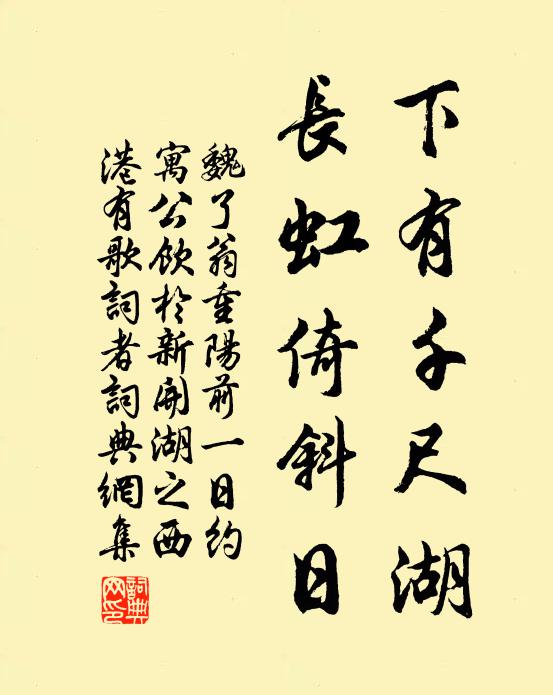 下有千尺湖
長虹倚斜日
魏了翁重陽前一日約
寓公飲於新開湖之西
港有歌詞者詞典網集
詞典
网印